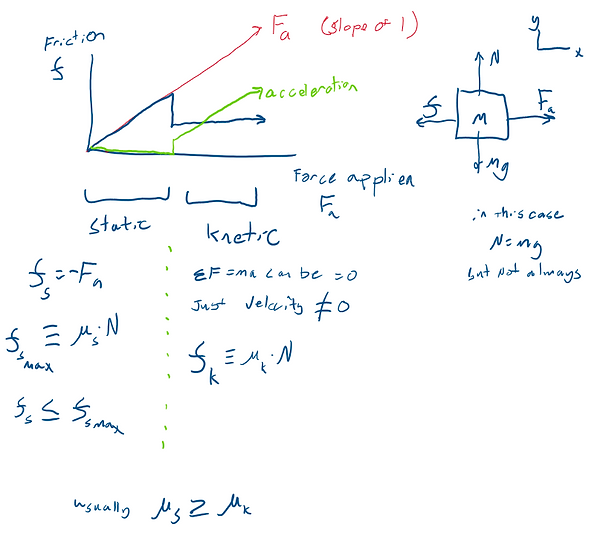 Friction
f
Fa (slope of 1)
acceleration
Force applied
Fa
static
knetic
fs = -Fa
fsmax ≡ μs · N
fs ≤ fsmax
ΣF = ma can be = 0
Just velocity ≠ 0
fk ≡ μk · N
usually μs ≥ μk
y
x
N
f
M
Fa
mg
in this case
N = mg
but not always